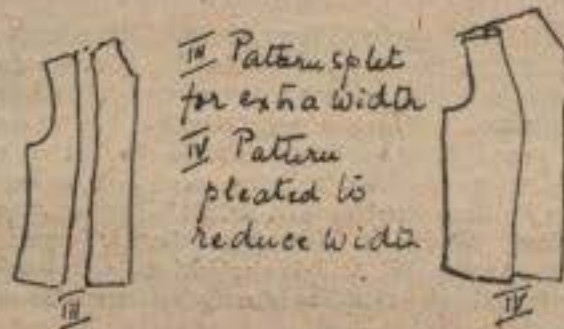 III Pattern split
for extra width
IV Pattern
pleated to
reduce width
III
IV